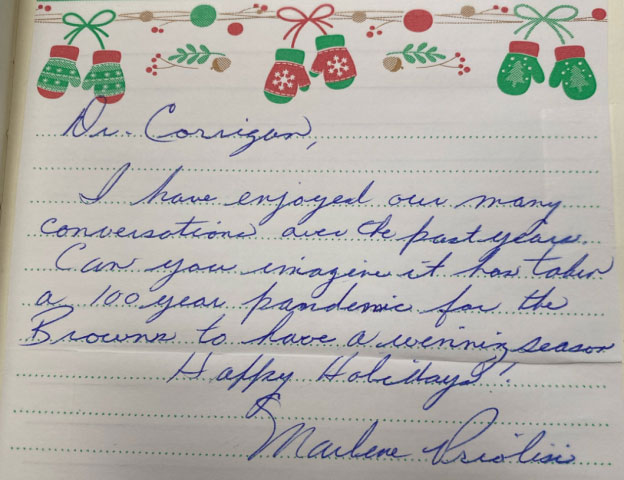 Dr. Corrigan,
I have enjoyed our many
conversations over the past years.
Can you imagine it has taken
a 100 year pandemic for the
Browns to have a winning season
Happy Holidays!
Marlene Priolisi